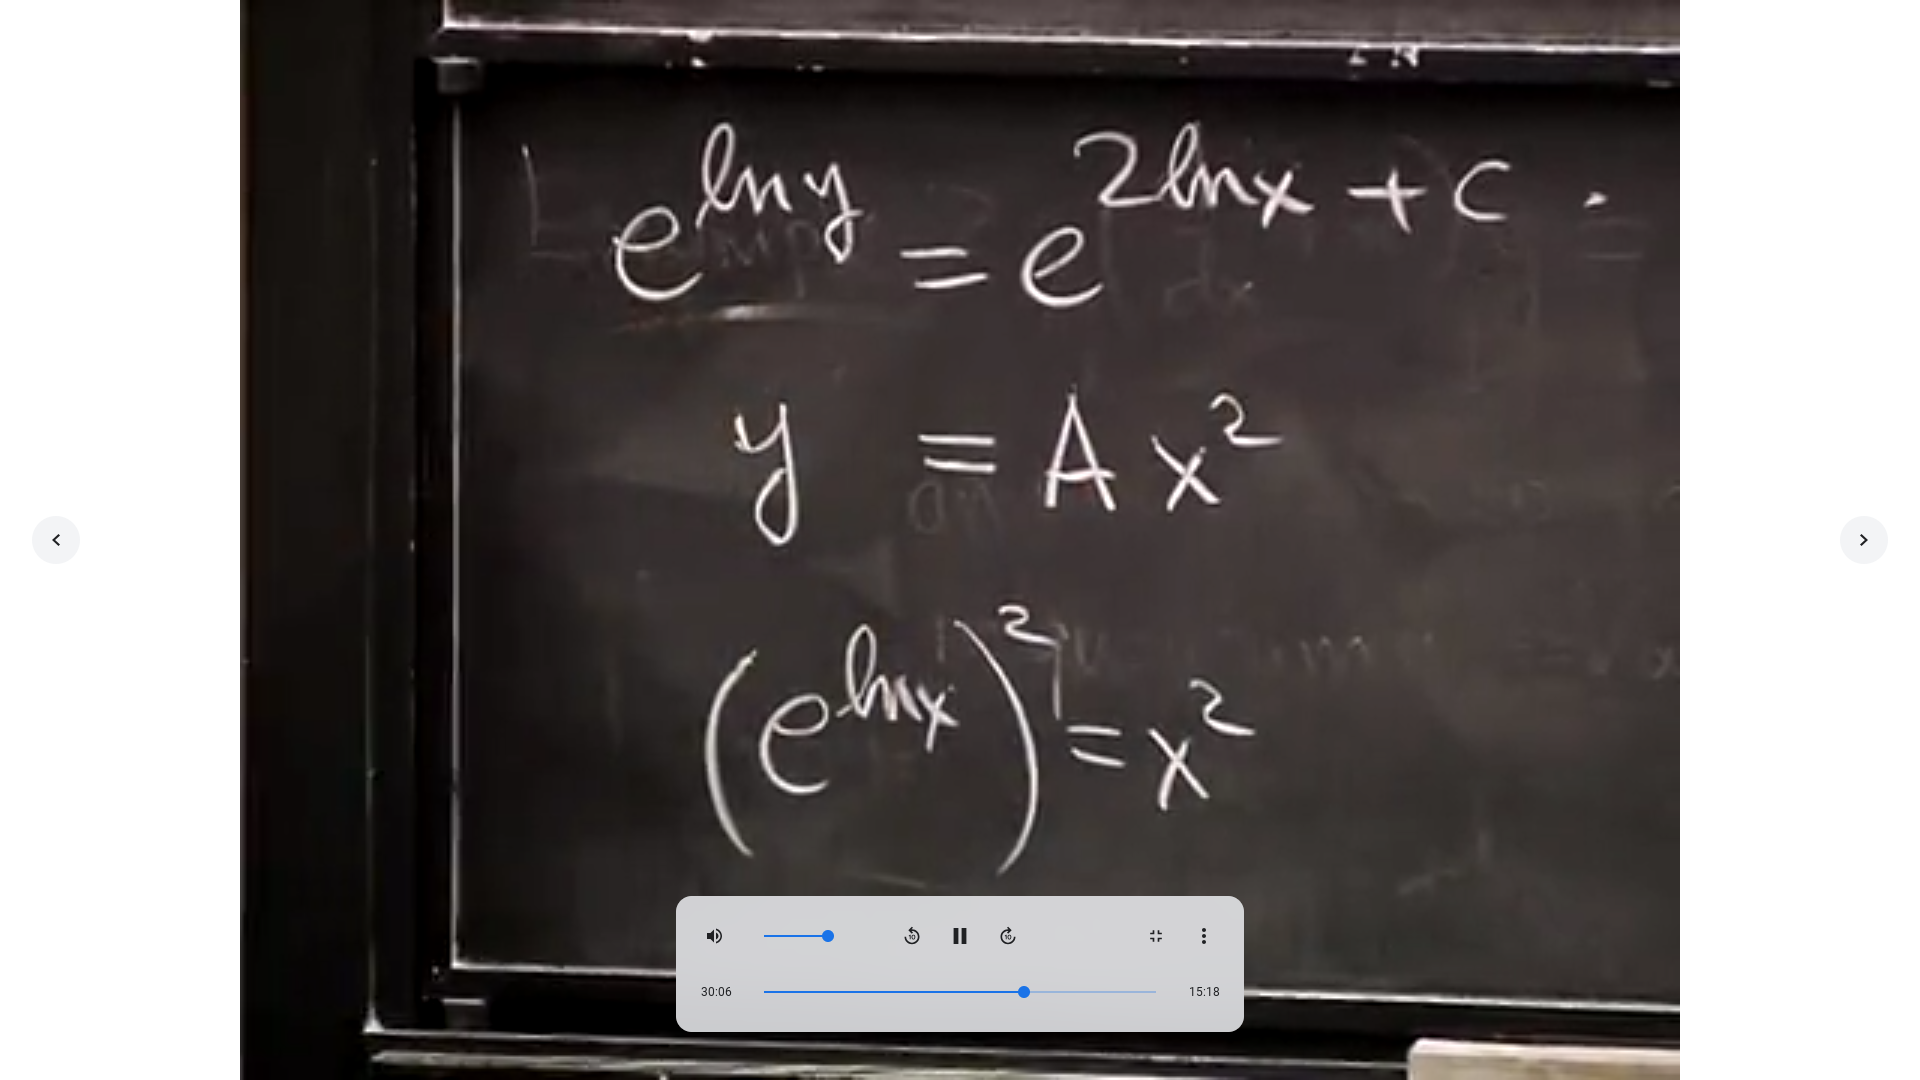 e^{ln y} = e^{2 ln x + c}.
y = A x^2
(e^{ln x})^2 = x^2
30:06
15:18